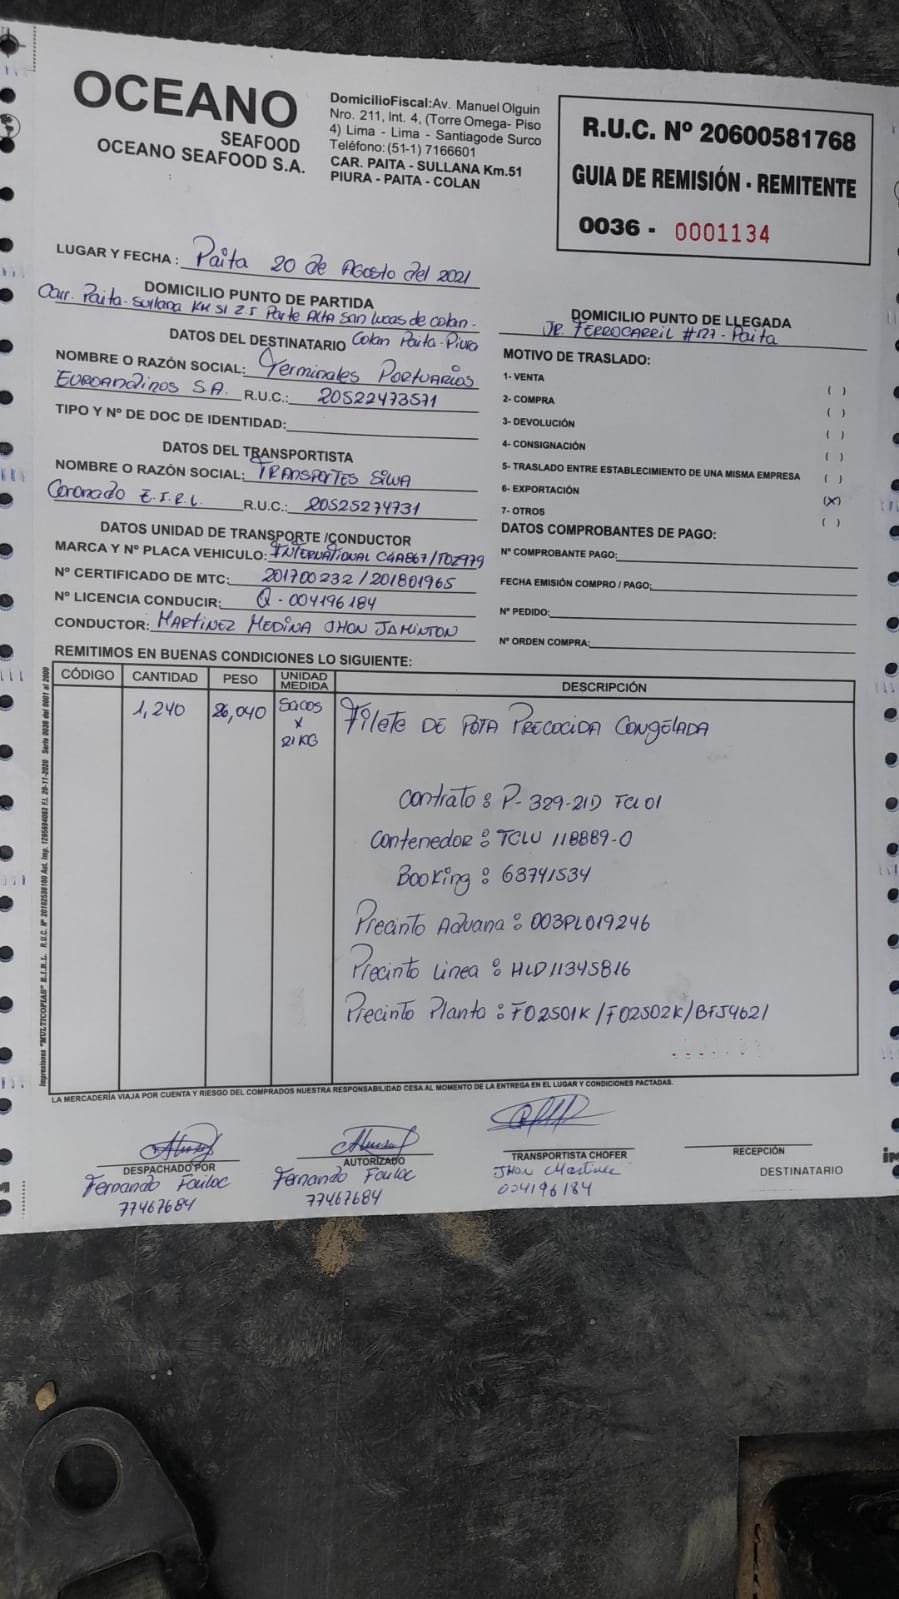 OCEANO
SEAFOOD
OCEANO SEAFOOD S.A.
DomicilioFiscal:Av. Manuel Olguin
Nro. 211, Int. 4, (Torre Omega- Piso
4) Lima - Lima - Santiagode Surco
Teléfono:(51-1) 7166601
CAR. PAITA - SULLANA Km.51
PIURA - PAITA - COLAN
R.U.C. Nº 20600581768
GUIA DE REMISIÓN - REMITENTE
0036 - 0001134
LUGAR Y FECHA : Paita 20 de Agosto del 2021
DOMICILIO PUNTO DE PARTIDA
Carr. Paita-Sullana KM 51 Z.I Parte Alta San Lucas de Colan-
Colan Paita-Piura
DOMICILIO PUNTO DE LLEGADA
JR. FERROCARRIL #127 - Paita
DATOS DEL DESTINATARIO
NOMBRE O RAZÓN SOCIAL: Terminales Portuarios
Euroandinos S.A. R.U.C.: 20522473571
TIPO Y Nº DE DOC DE IDENTIDAD:
DATOS DEL TRANSPORTISTA
NOMBRE O RAZÓN SOCIAL: TRANSPORTES SILVA
Coronado E.I.R.L. R.U.C.: 20525274731
DATOS UNIDAD DE TRANSPORTE /CONDUCTOR
MARCA Y Nº PLACA VEHICULO: INTERNATIONAL C4A867/T0Z979
Nº CERTIFICADO DE MTC: 201700232 / 201801965
Nº LICENCIA CONDUCIR: Q-004196184
CONDUCTOR: MARTINEZ MEDINA JHON JAMINTON
MOTIVO DE TRASLADO:
1- VENTA ( )
2- COMPRA ( )
3- DEVOLUCIÓN ( )
4- CONSIGNACIÓN ( )
5- TRASLADO ENTRE ESTABLECIMIENTO DE UNA MISMA EMPRESA ( )
6- EXPORTACIÓN (X)
7- OTROS ( )
DATOS COMPROBANTES DE PAGO:
Nº COMPROBANTE PAGO:
FECHA EMISIÓN COMPRO / PAGO:
Nº PEDIDO:
Nº ORDEN COMPRA:
REMITIMOS EN BUENAS CONDICIONES LO SIGUIENTE:
CÓDIGO CANTIDAD PESO UNIDAD MEDIDA DESCRIPCIÓN
1,240 26,040 Sacos x 21 KG Filete DE POTA PRECOCIDA CONGELADA
Contrato : P-329-21D TCL01
Contenedor : TCLU 118889-0
Booking : 63741534
Precinto Aduana : 003PL019246
Precinto Linea : HLD11345816
Precinto Planta : F02501K/F02502K/BFJ4621
LA MERCADERÍA VIAJA POR CUENTA Y RIESGO DEL COMPRADOS NUESTRA RESPONSABILIDAD CESA AL MOMENTO DE LA ENTREGA EN EL LUGAR Y CONDICIONES PACTADAS.
DESPACHADO POR
Fernando
77467684
AUTORIZADO
Fernando
77467684
TRANSPORTISTA CHOFER
JHON Martinez
004196184
RECEPCIÓN
DESTINATARIO